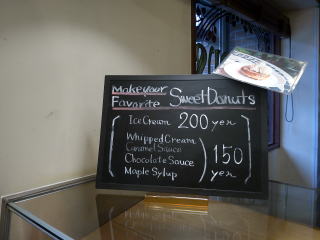 Make your
Favorite Sweet Donuts
Ice Cream 200 yen
Whipped Cream
Caramel Sauce
Chocolate Sauce
Maple Sylup
150 yen